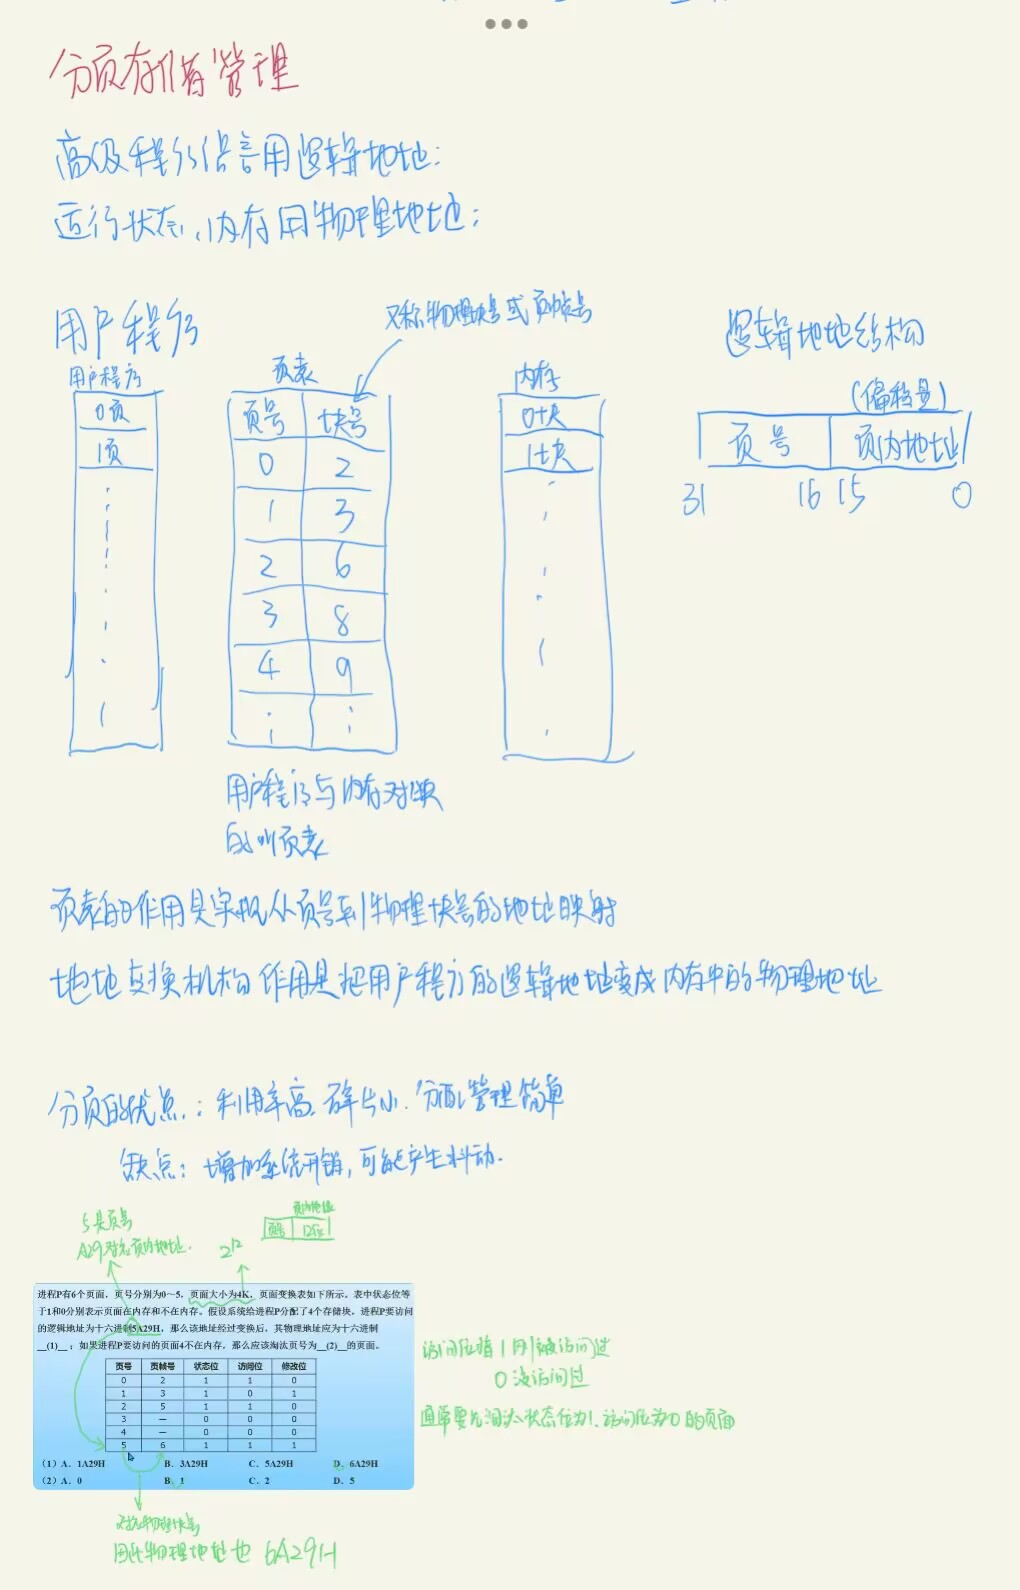 分页存储管理
高级程序语言用逻辑地址；
运行状态、内存用物理地址；
又称物理块号或页帧号
用户程序
逻辑地址结构
用户程序
页表
内存
(偏移量)
0页
页号 块号
0块
页号 页内地址
1页
0 2
1块
31 16 15 0
1 3
2 6
3 8
4 9
用户程序与内存对映
的叫页表
页表的作用是实现从页号到物理块号的地址映射
地址变换机构作用是把用户程序的逻辑地址变成内存中的物理地址
分页的优点：利用率高、碎片小、分配管理简单
缺点：增加系统开销，可能产生抖动.
页内地址
5是页号
页号 12位
A29对应页内地址.
2^12
进程P有6个页面，页号分别为0～5，页面大小为4K，页面变换表如下所示。表中状态位等
于1和0分别表示页面在内存和不在内存。假设系统给进程P分配了4个存储块，进程P要访问
的逻辑地址为十六进制5A29H，那么该地址经过变换后，其物理地址应为十六进制
__(1)__；如果进程P要访问的页面4不在内存，那么应该淘汰页号为__(2)__的页面。
页号 页帧号 状态位 访问位 修改位
0 2 1 1 0
1 3 1 0 1
2 5 1 1 0
3 — 0 0 0
4 — 0 0 0
5 6 1 1 1
(1) A．1A29H B．3A29H C．5A29H D．6A29H
(2) A．0 B．1 C．2 D．5
访问位指 1 则被访问过
0 没访问过
通常要先淘汰状态位为1、访问位为0的页面
对应物理块号
用此物理地址也 6A29H